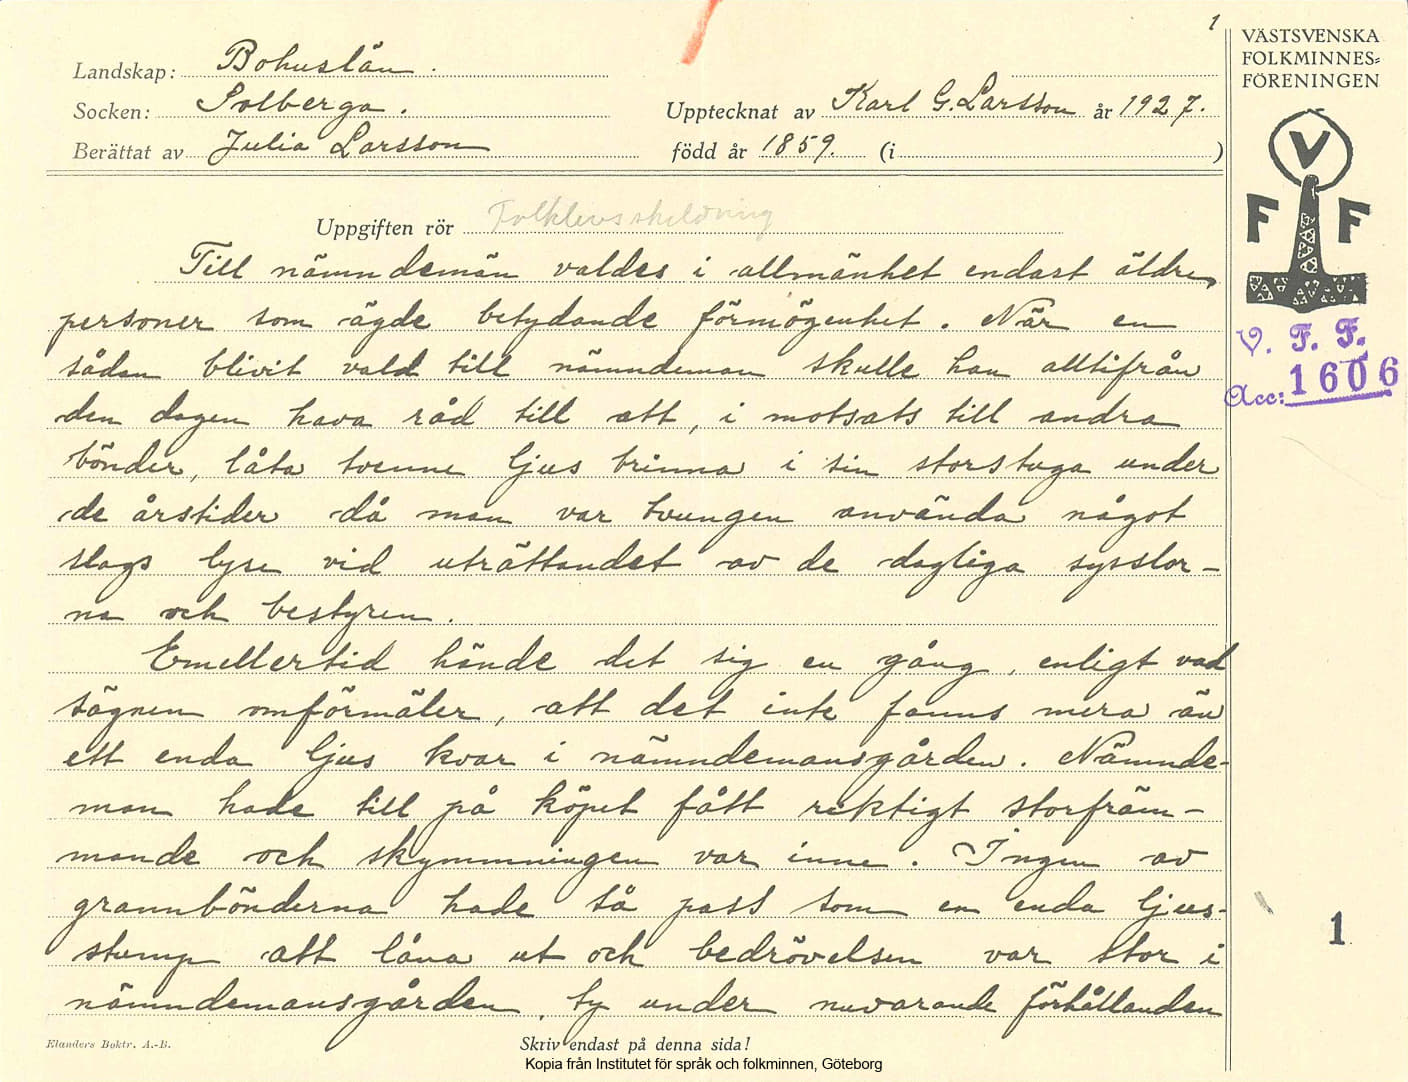 1
VÄSTSVENSKA
FOLKMINNES=
FÖRENINGEN
Landskap: Bohuslän.
Socken: Solberga.
Upptecknat av Karl G. Larsson år 1927.
Berättat av Julia Larsson
född år 1859. (i )
V
F F
V. F. F.
Acc: 1606
Uppgiften rör Folklivsskildring
Till nämndemän valdes i allmänhet endast äldre
personer som ägde betydande förmögenhet. När en
sådan blivit vald till nämndeman skulle han alltifrån
den dagen hava råd till att, i motsats till andra
bönder, låta tvenne ljus brinna i sin storstuga under
de årstider då man var tvungen använda något
slags lyse vid uträttandet av de dagliga sysslor-
na och bestyren.
Emellertid hände det sig en gång, enligt vad
sägnen omförmäler, att det inte fanns mera än
ett enda ljus kvar i nämndemansgården. Nämnde-
man hade till på köpet fått riktigt storfräm-
mande och skymningen var inne. Ingen av
grannbönderna hade så pass som en enda ljus-
stump att låna ut och bedrövelsen var stor i
nämndemansgården, ty under nuvarande förhållanden
1
Elanders Boktr. A.-B.
Skriv endast på denna sida!
Kopia från Institutet för språk och folkminnen, Göteborg